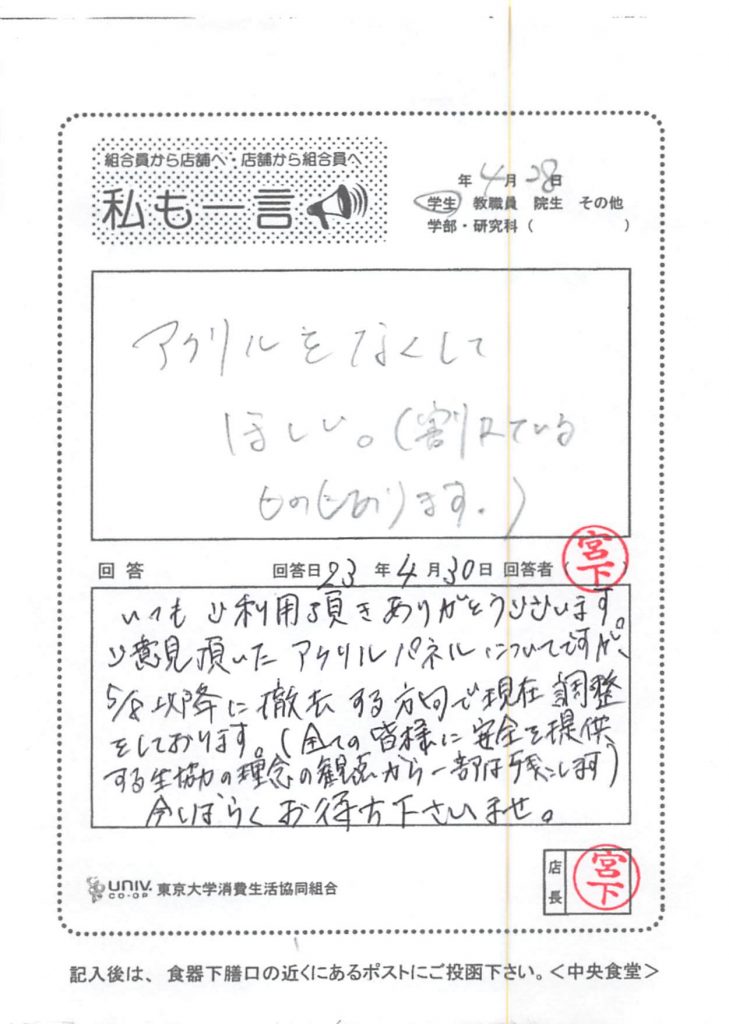 組合員から店舗へ・店舗から組合員へ
私も一言
年 4月 28日
学生 教職員 院生 その他
学部・研究科( )
アクリルをなくして
ほしい。(割れている
ものもあります。)
回答 回答日 23年 4月 30日 回答者( 宮下 )
いつもご利用頂きありがとうございます。
ご意見頂いたアクリルパネルについてですが、
5/8以降に撤去する方向で現在調整
をしております。(全ての皆様に安全を提供
する生協の理念の観点から一部は残します)
今しばらくお待ち下さいませ。
UNIV. CO-OP 東京大学消費生活協同組合
店長 宮下
記入後は、食器下膳口の近くにあるポストにご投函下さい。<中央食堂>